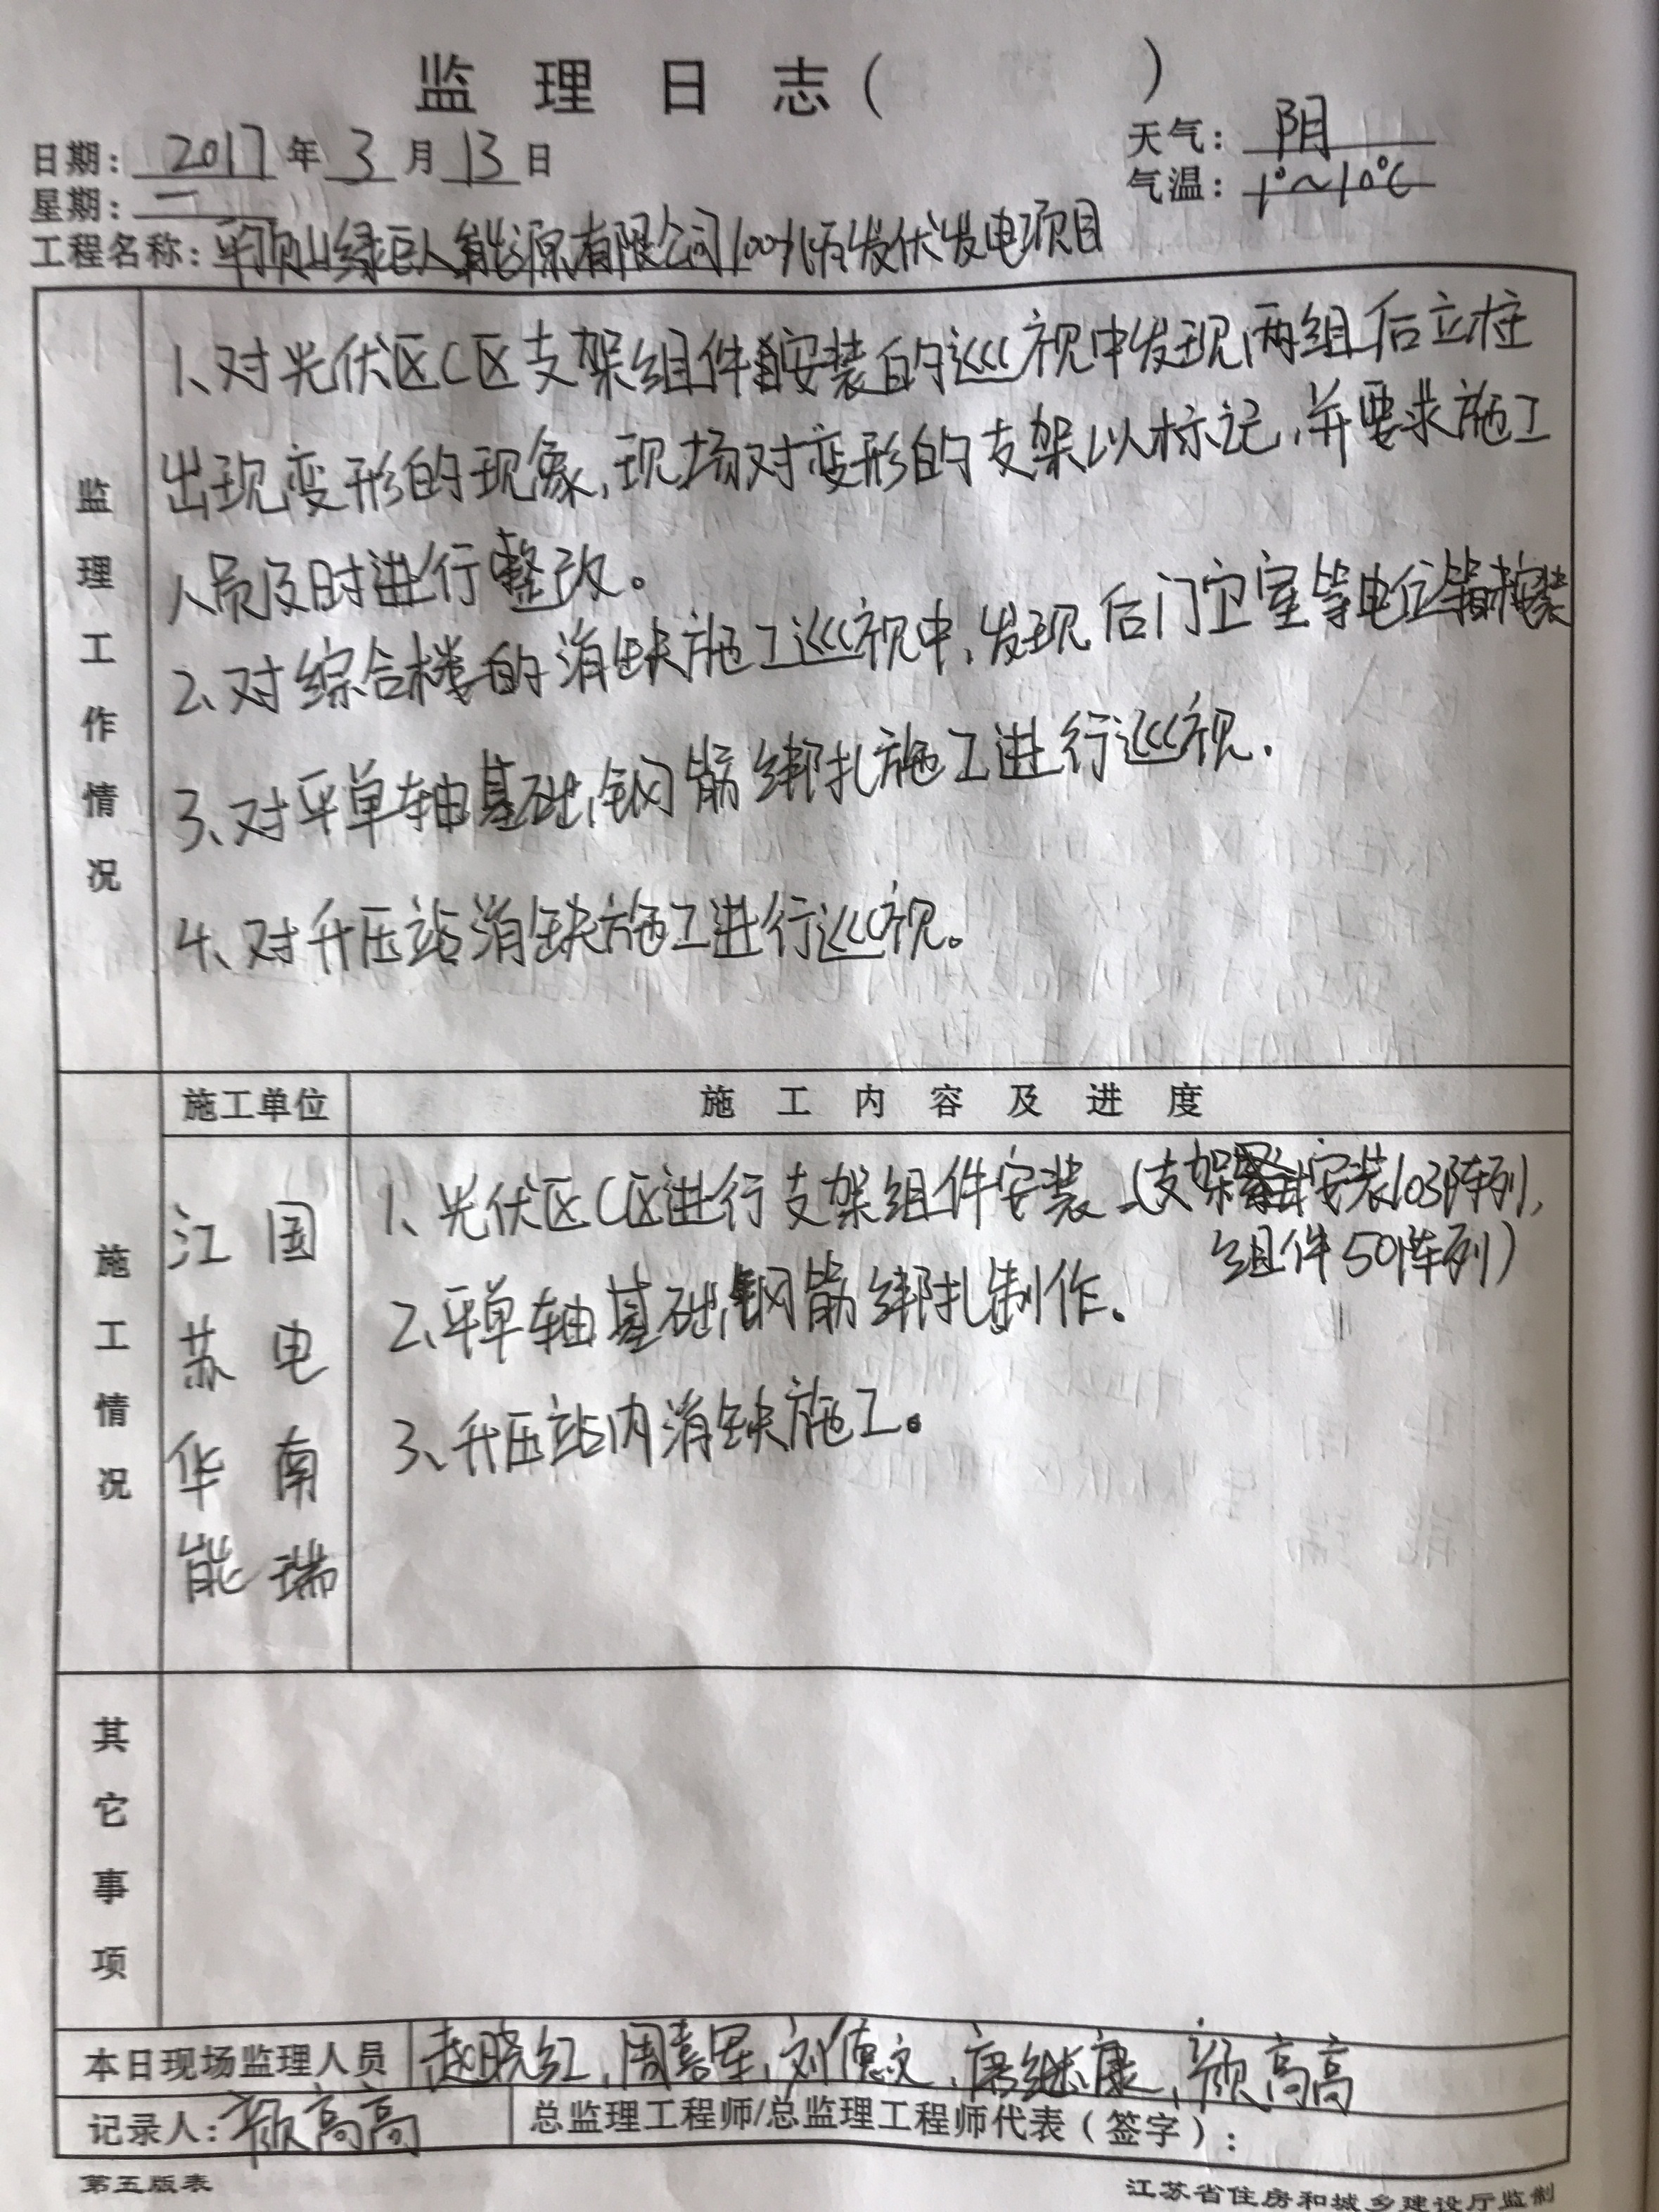 监理日志（　　　）
日期：2017年3月13日　天气：阴
星期：二　气温：1°~10℃
工程名称：平顶山绿巨人能源有限公司100兆瓦发伏发电项目
监理工作情况
1、对光伏区C区支架组件安装的巡视中发现两组后立柱
出现变形的现象，现场对变形的支架以标记，并要求施工
人员及时进行整改。
2、对综合楼的消缺施工巡视中，发现后门卫室等电位箱未安装
3、对平单轴基础钢筋绑扎施工进行巡视.
4、对升压站消缺施工进行巡视。
施工情况
施工单位　施工内容及进度
江苏华能
国电南瑞
1、光伏区C区进行支架组件安装（支架安装103阵列，
组件50阵列）
2、平单轴基础钢筋绑扎制作。
3、升压站内消缺施工。
其它事项
本日现场监理人员　赵晓红、周喜军、刘德文、唐继康、颜高高
记录人：颜高高　总监理工程师/总监理工程师代表（签字）：
第五版表　江苏省住房和城乡建设厅监制